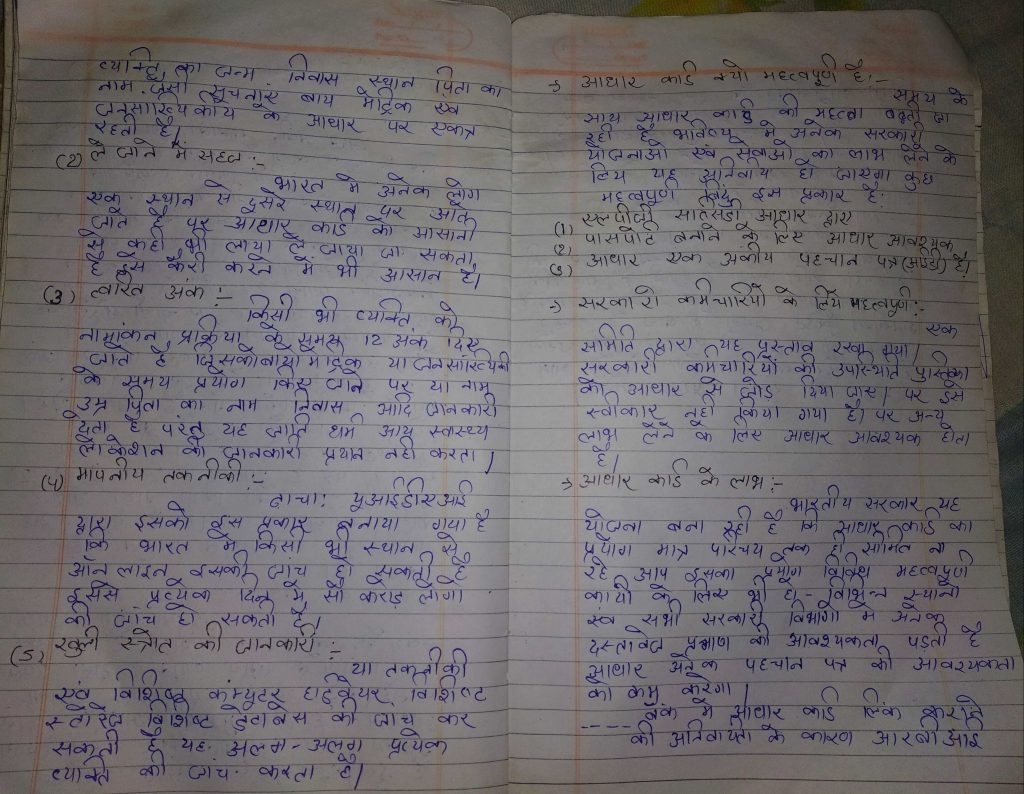 व्यक्ति का जन्म निवास स्थान पिता का
नाम जैसी सूचनाए बाय मैट्रिक एव
जनसांख्यिकीय के आधार पर एकत्र
रहती है।
(2) ले जाने में सहज :-
भारत में अनेक लोग
एक स्थान से दुसरे स्थान पर आते
जाते है पर आधार कार्ड को आसानी
से कही भी लाया ले जाया जा सकता
है इसे कैरी करने में भी आसान है।
(3) त्वरित अंक :-
किसी भी व्यक्ति को
नामांकन प्राक्रिया के समय 12 अंक दिए
जाते है जिसका बायो मैट्रिक या जनसांख्यिकी
के समय प्रयोग किए जाने पर या नाम
उम्र पिता का नाम निवास आदि जानकारी
देता है परंतु यह जाति धर्म आय स्वास्थ्य
लोकेशन की जानकारी प्रधान नही करता।
(4) मापनीय तकनीकी :-
ढाचा: यूआईडीएआई
द्वारा इसको इस प्रकार बनाया गया है
कि भारत में किसी भी स्थान से
ऑनलाइन इसकी जाच हो सकती है
इससे प्रत्येक दिन में सौ करोड़ लोगो
की जाच हो सकती है।
(5) खुली स्त्रोत की जानकारी :-
या तकनीकी
एवं विशिष्ट कम्प्युटर हार्डवेयर विशिष्ट
स्टोरेज विशिष्ट डेटाबेस की जाच कर
सकती है यह अलग-अलग प्रत्येक
व्यक्ति की जाच करता है।
→ आधार कार्ड क्यो महत्वपूर्ण है।-
समय के
साथ आधार कार्ड की महत्वा बढ़ती जा
रही है भविष्य में अनेक सरकारी
योजनाओ एवं सेवाओ का लाभ लेने के
लिय यह अनिवार्य हो जाएगा कुछ
महत्वपूर्ण बिंदु इस प्रकार है:
(1) एलपीजी सबसिडी आधार द्वारा
(2) पासपोर्ट बनाने के लिए आधार आवश्यक
(3) आधार एक अंकीय पहचान पत्र है।
→ सरकारी कर्मचारियो के लिय महत्वपूर्ण:-
एक
समिति द्वारा यह प्रस्ताव रखा गया।
सरकारी कर्मचारियों की उपस्थिति पुस्तिका
को आधार से जोड दिया जाए। पर इसे
स्वीकार नही किया गया हो पर अन्य
लाभ लेने के लिए आधार आवश्यक होता
है।
→ आधार कार्ड के लाभ :-
भारतीय सरकार यह
योजना बना रही है कि आधार कार्ड का
प्रयोग मात्र परिचय तक ही सीमित ना
रहे आप इसका प्रयोग विविध महत्वपूर्ण
कार्यो के लिए भी हो- विभिन्न स्थानो
एवं सभी सरकारी विभागो में अनेक
दस्तावेज प्रमाण की आवश्यकता पड़ती है
आधार अनेक पहचान पत्र की आवश्यकता
को कम करेगा।
----- बैंक में आधार कार्ड लिंक कराने
की अनिवार्यता के कारण आरबीआई